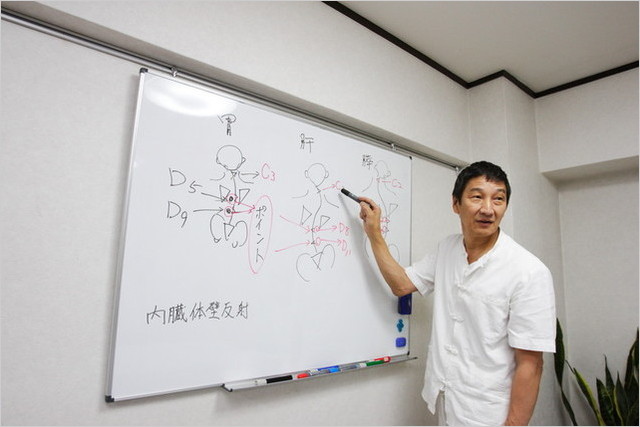 胃
肝
膵
C3
D5
D9
ポイント
C
D8
D11
C2
内臓体壁反射